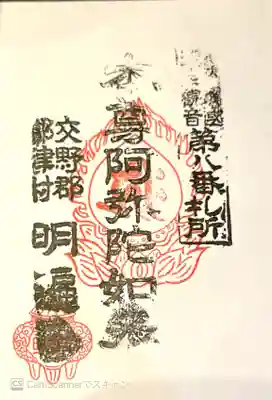 第八番札所
本尊阿弥陀如来
交野郡
郡津村
明遍寺
CamScannerでスキャン